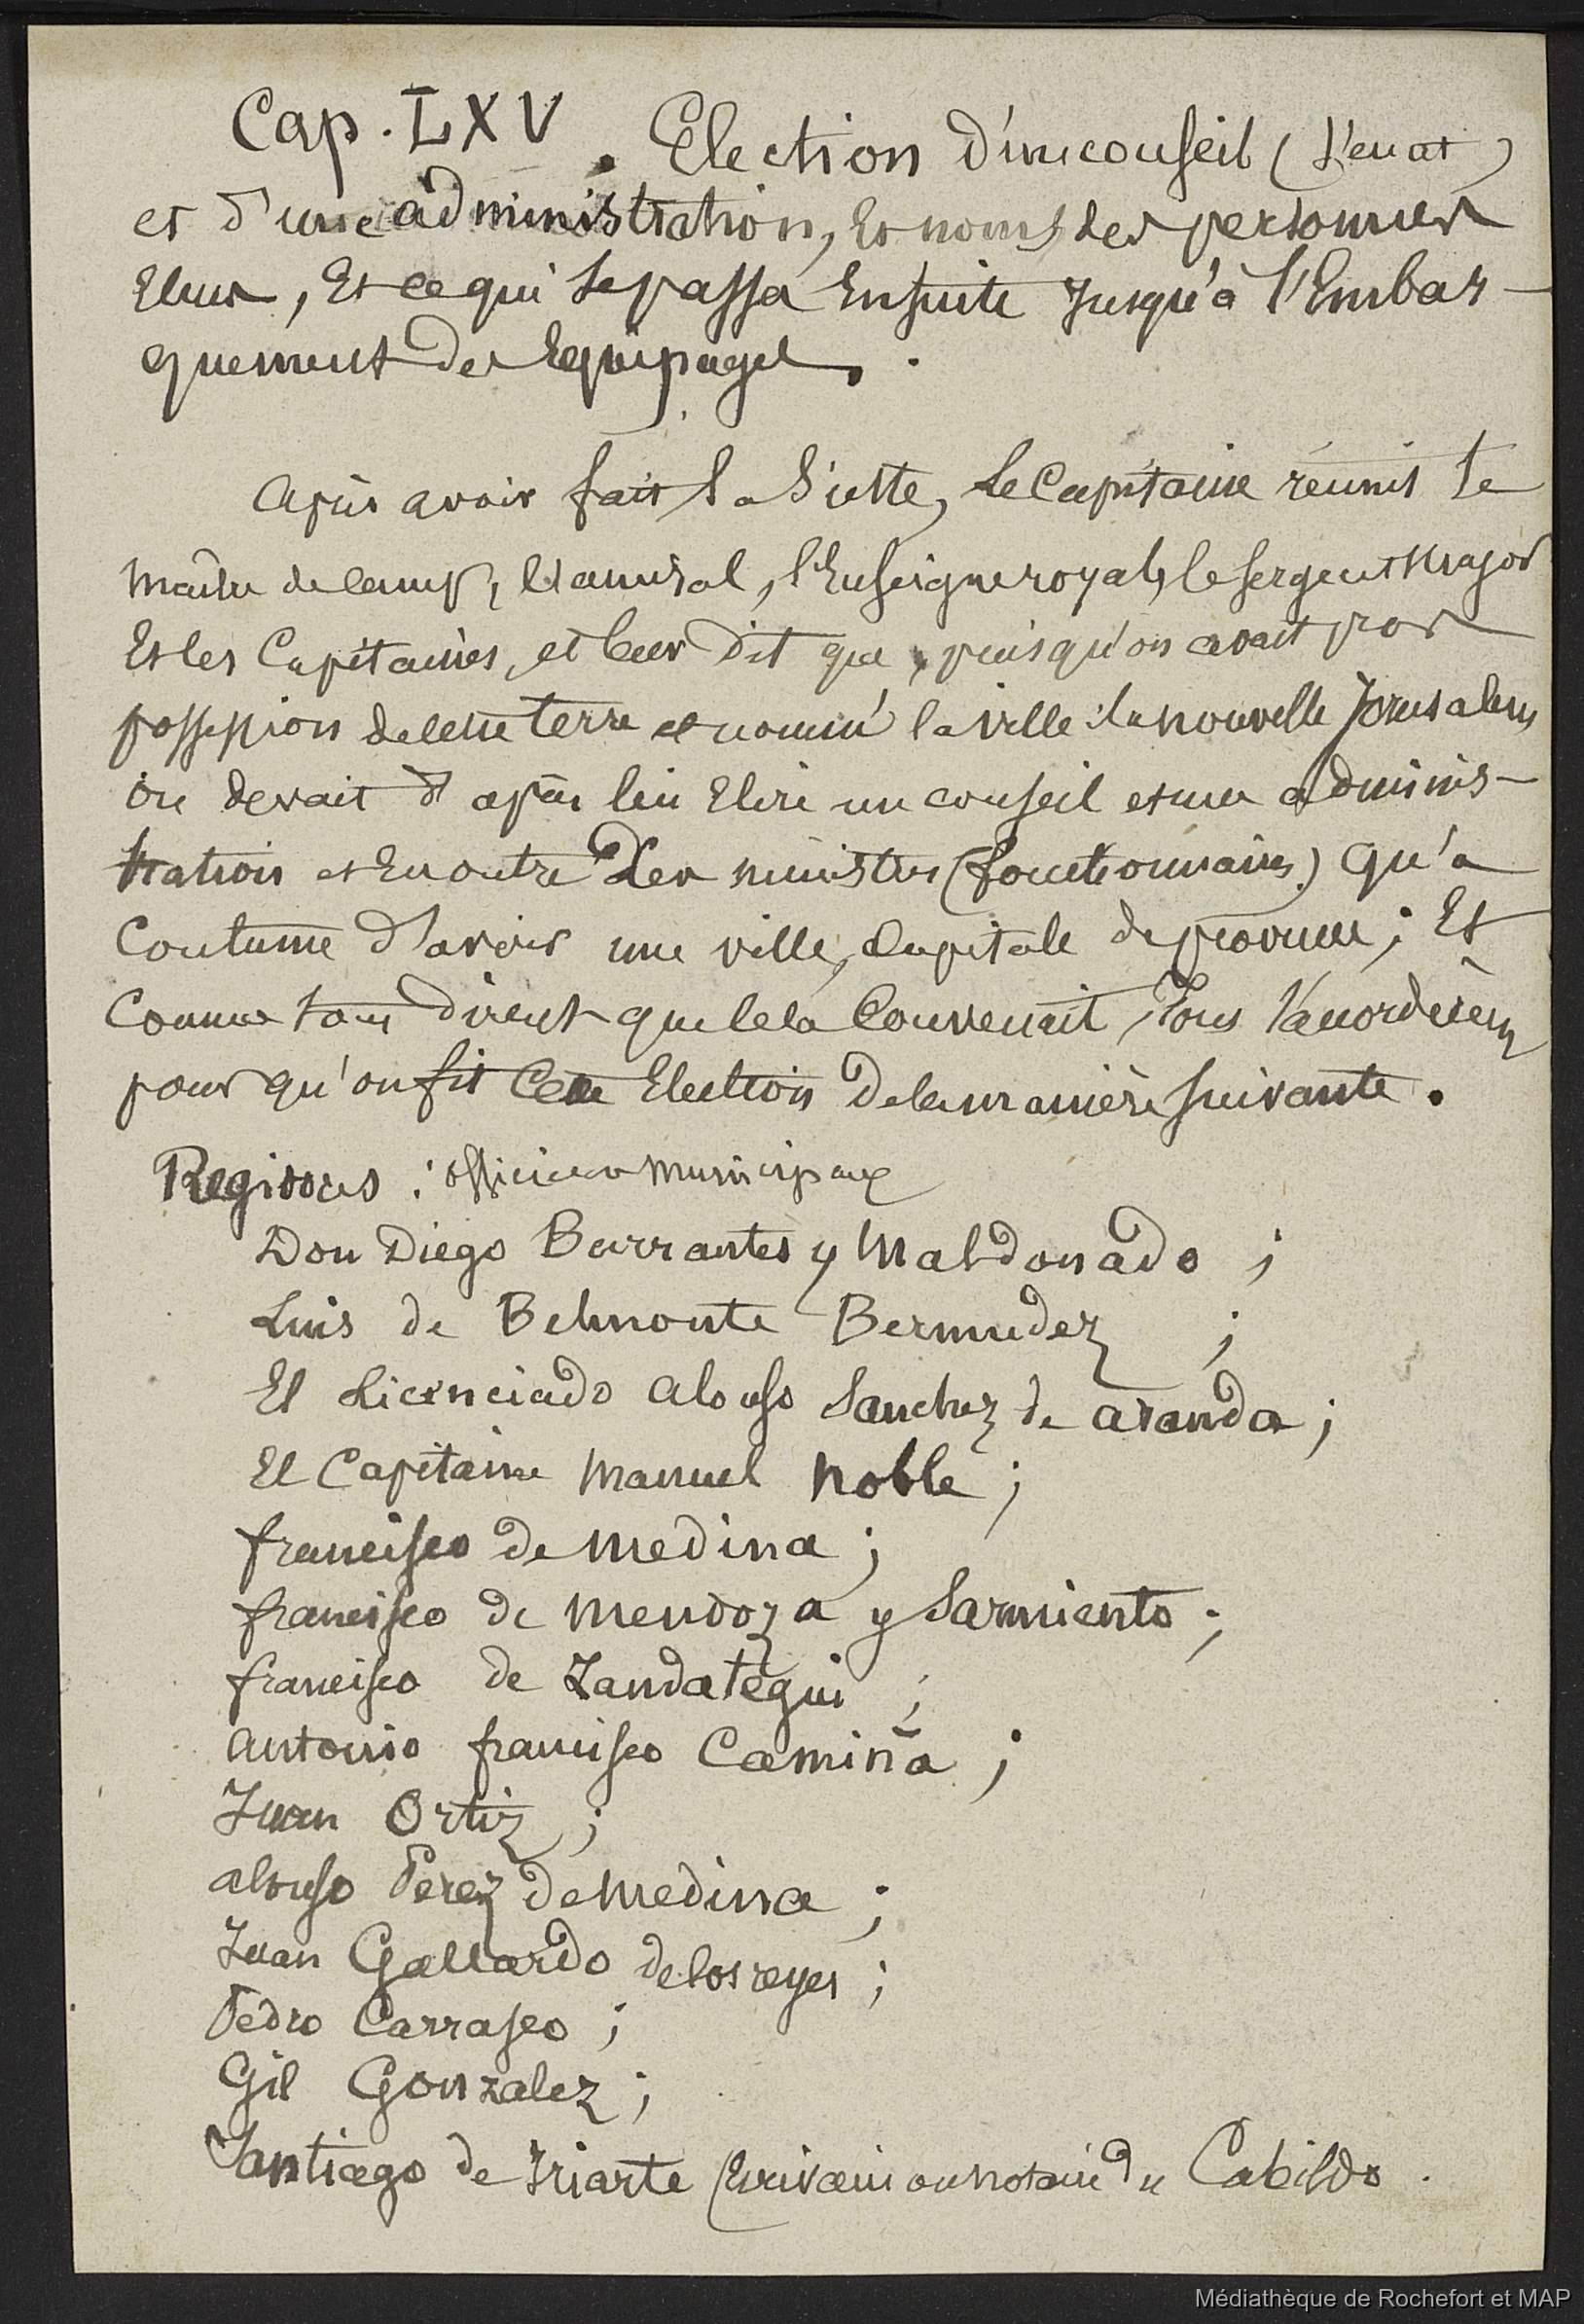 Cap. LXV. Election d'un conseil (Sénat)
et d'une administration, Es noms des personnes
Elues, Et ce qui se passa Ensuite Jusqu'à l'Embar-
quement des Equipages.
après avoir fait la Sieste, Le Capitaine réunit le
Maitre de Camp, l'amiral, l'Enseigne royal, le sergent Major
Et les Capitaines, et leur dit que, puisqu'on avait pris
possession de cette terre et nommé la ville la nouvelle Jerusalem
On devait d'après lui Elire un conseil et une adminis-
tration et En outre des ministres (fonctionnaires) qu'a
Coutume d'avoir une ville, Capitale de province ; Et
Comme tous dirent que cela Convenait, Tous s'accordèrent
pour qu'on fit cette Election de la manière suivante.
Regidores : officiers municipaux
Don Diego Barrantes y Maldonado ;
Luis de Belmonte Bermudez ;
El Licenciado Alonso Sanchez de aranda ;
El Capitaine Manuel Noble ;
francisco de Medina ;
francisco de Mendoza y Sarmiento ;
francisco de Zandategui ;
Antonio francisco Camiña ;
Juan Ortiz ;
alonso Perez de Medina ;
Juan Gallardo de los reyes ;
Pedro Carrasco ;
Gil Gonzalez ;
Santiago de Iriarte (Ecrivain ou notaire du Cabildo.
Médiathèque de Rochefort et MAP